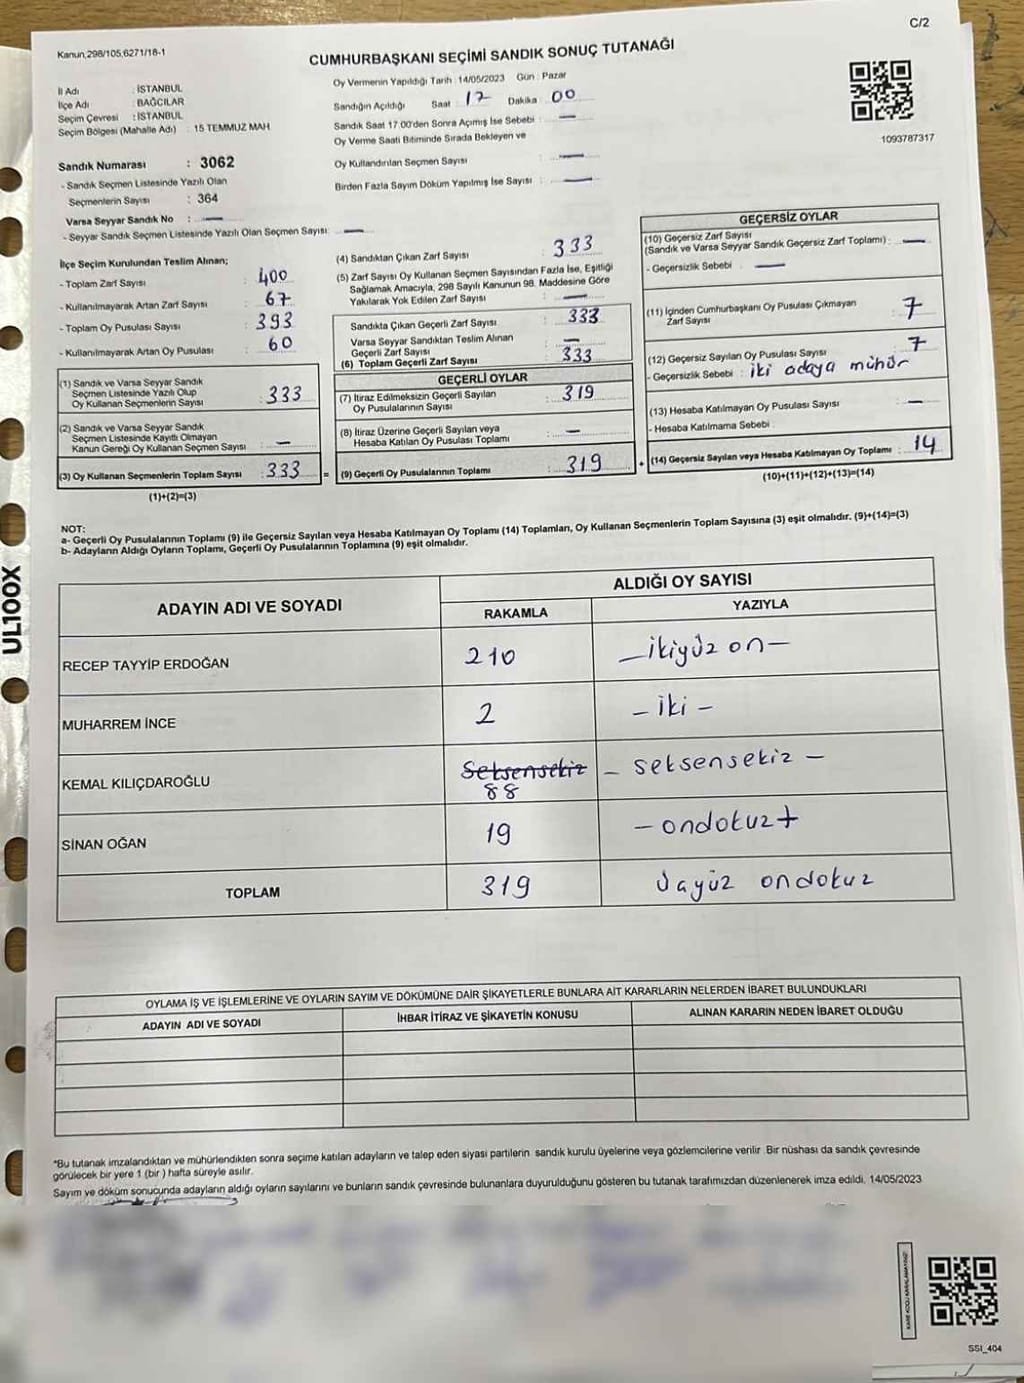 C/2
Kanun,298/105,6271/18-1
CUMHURBAŞKANI SEÇİMİ SANDIK SONUÇ TUTANAĞI
İl Adı : İSTANBUL
İlçe Adı : BAĞCILAR
Seçim Çevresi : İSTANBUL
Seçim Bölgesi (Mahalle Adı) : 15 TEMMUZ MAH
Sandık Numarası : 3062
- Sandık Seçmen Listesinde Yazılı Olan
Seçmenlerin Sayısı : 364
Varsa Seyyar Sandık No : —
- Seyyar Sandık Seçmen Listesinde Yazılı Olan Seçmen Sayısı: —
Oy Vermenin Yapıldığı Tarih : 14/05/2023 Gün : Pazar
Sandığın Açıldığı Saat 17 Dakika 00
Sandık Saat 17.00'den Sonra Açımış İse Sebebi : —
Oy Verme Saati Bitiminde Sırada Bekleyen ve
Oy Kullandırılan Seçmen Sayısı : —
Birden Fazla Sayım Döküm Yapılmış İse Sayısı : —
1093787317
İlçe Seçim Kurulundan Teslim Alınan;
- Toplam Zarf Sayısı : 400
- Kullanılmayarak Artan Zarf Sayısı : 67
- Toplam Oy Pusulası Sayısı : 393
- Kullanılmayarak Artan Oy Pusulası : 60
(1) Sandık ve Varsa Seyyar Sandık
Seçmen Listesinde Yazılı Olup
Oy Kullanan Seçmenlerin Sayısı : 333
(2) Sandık ve Varsa Seyyar Sandık
Seçmen Listesinde Kayıtlı Olmayan
Kanun Gereği Oy Kullanan Seçmen Sayısı : —
(3) Oy Kullanan Seçmenlerin Toplam Sayısı : 333 =
(1)+(2)=(3)
(4) Sandıktan Çıkan Zarf Sayısı : 333
(5) Zarf Sayısı Oy Kullanan Seçmen Sayısından Fazla İse, Eşitliği
Sağlamak Amacıyla, 298 Sayılı Kanunun 98. Maddesine Göre
Yakılarak Yok Edilen Zarf Sayısı : —
Sandıkta Çıkan Geçerli Zarf Sayısı : 333
Varsa Seyyar Sandıktan Teslim Alınan
Geçerli Zarf Sayısı : —
(6) Toplam Geçerli Zarf Sayısı : 333
GEÇERLİ OYLAR
(7) İtiraz Edilmeksizin Geçerli Sayılan
Oy Pusulalarının Sayısı : 319
(8) İtiraz Üzerine Geçerli Sayılan veya
Hesaba Katılan Oy Pusulası Toplamı : —
(9) Geçerli Oy Pusulalarının Toplamı : 319 +
GEÇERSİZ OYLAR
(10) Geçersiz Zarf Sayısı
(Sandık ve Varsa Seyyar Sandık Geçersiz Zarf Toplamı) : —
- Geçersizlik Sebebi : —
(11) İçinden Cumhurbaşkanı Oy Pusulası Çıkmayan
Zarf Sayısı : 7
(12) Geçersiz Sayılan Oy Pusulası Sayısı : 7
- Geçersizlik Sebebi : iki adaya mühür
(13) Hesaba Katılmayan Oy Pusulası Sayısı : —
- Hesaba Katılmama Sebebi :
(14) Geçersiz Sayılan veya Hesaba Katılmayan Oy Toplamı : 14
(10)+(11)+(12)+(13)=(14)
NOT:
a- Geçerli Oy Pusulalarının Toplamı (9) ile Geçersiz Sayılan veya Hesaba Katılmayan Oy Toplamı (14) Toplamları, Oy Kullanan Seçmenlerin Toplam Sayısına (3) eşit olmalıdır. (9)+(14)=(3)
b- Adayların Aldığı Oyların Toplamı, Geçerli Oy Pusulalarının Toplamına (9) eşit olmalıdır.
ADAYIN ADI VE SOYADI
ALDIĞI OY SAYISI
RAKAMLA YAZIYLA
RECEP TAYYİP ERDOĞAN 210 — ikiyüz on —
MUHARREM İNCE 2 — iki —
KEMAL KILIÇDAROĞLU Seksensekiz 88 — seksensekiz —
SİNAN OĞAN 19 — ondokuz +
TOPLAM 319 üçyüz ondokuz
OYLAMA İŞ VE İŞLEMLERİNE VE OYLARIN SAYIM VE DÖKÜMÜNE DAİR ŞİKAYETLERLE BUNLARA AİT KARARLARIN NELERDEN İBARET BULUNDUKLARI
ADAYIN ADI VE SOYADI İHBAR İTİRAZ VE ŞİKAYETİN KONUSU ALINAN KARARIN NEDEN İBARET OLDUĞU
*Bu tutanak imzalandıktan ve mühürlendikten sonra seçime katılan adayların ve talep eden siyasi partilerin sandık kurulu üyelerine veya gözlemcilerine verilir. Bir nüshası da sandık çevresinde
görülecek bir yere 1 (bir ) hafta süreyle asılır.
Sayım ve döküm sonucunda adayların aldığı oyların sayılarını ve bunların sandık çevresinde bulunanlara duyurulduğunu gösteren bu tutanak tarafımızdan düzenlenerek imza edildi. 14/05/2023
SSI_404
UL100X